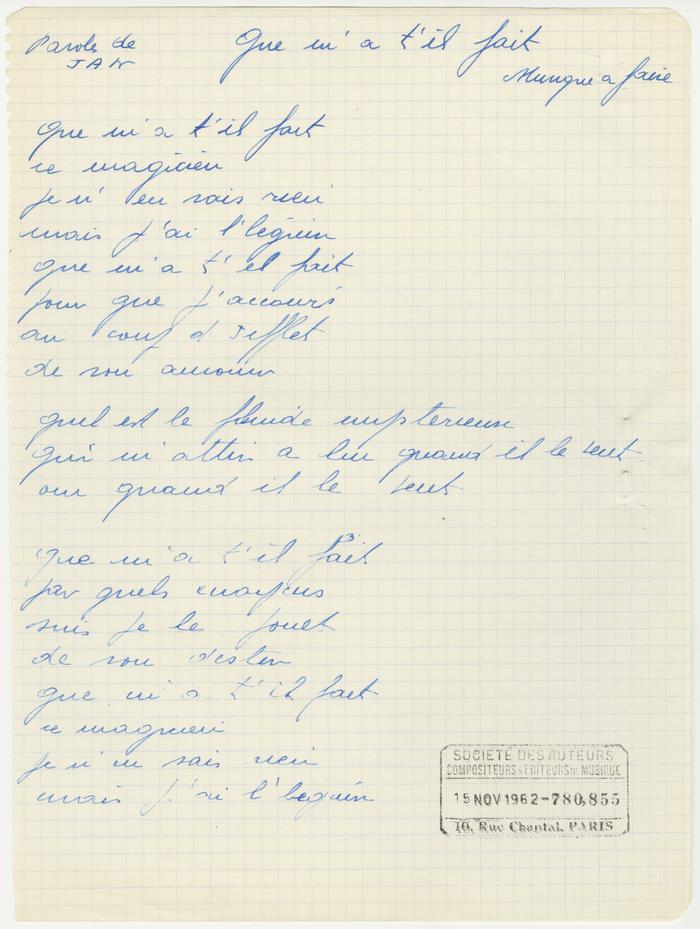 Paroles de
JAN
Que m'a t'il fait
Musique a faire
Que m'a t'il fait
ce magicien
je n' en sais rien
mais j'ai l'béguin
que m'a t' il fait
pour que j'accours
au coup d sifflet
de son amour
quel est le fluide mysterieux
qui m'attire a lui quand il le veut
oui quand il le veut
Que m'a t'il fait
par quels moyens
suis je le jouet
de son destin
que m'a t'il fait
ce magicien
je n'en sais rien
mais j'ai l'beguin
SOCIÉTÉ DES AUTEURS
COMPOSITEURS & EDITEURS DE MUSIQUE
15 NOV 1962-780,855
10, Rue Chaptal, PARIS